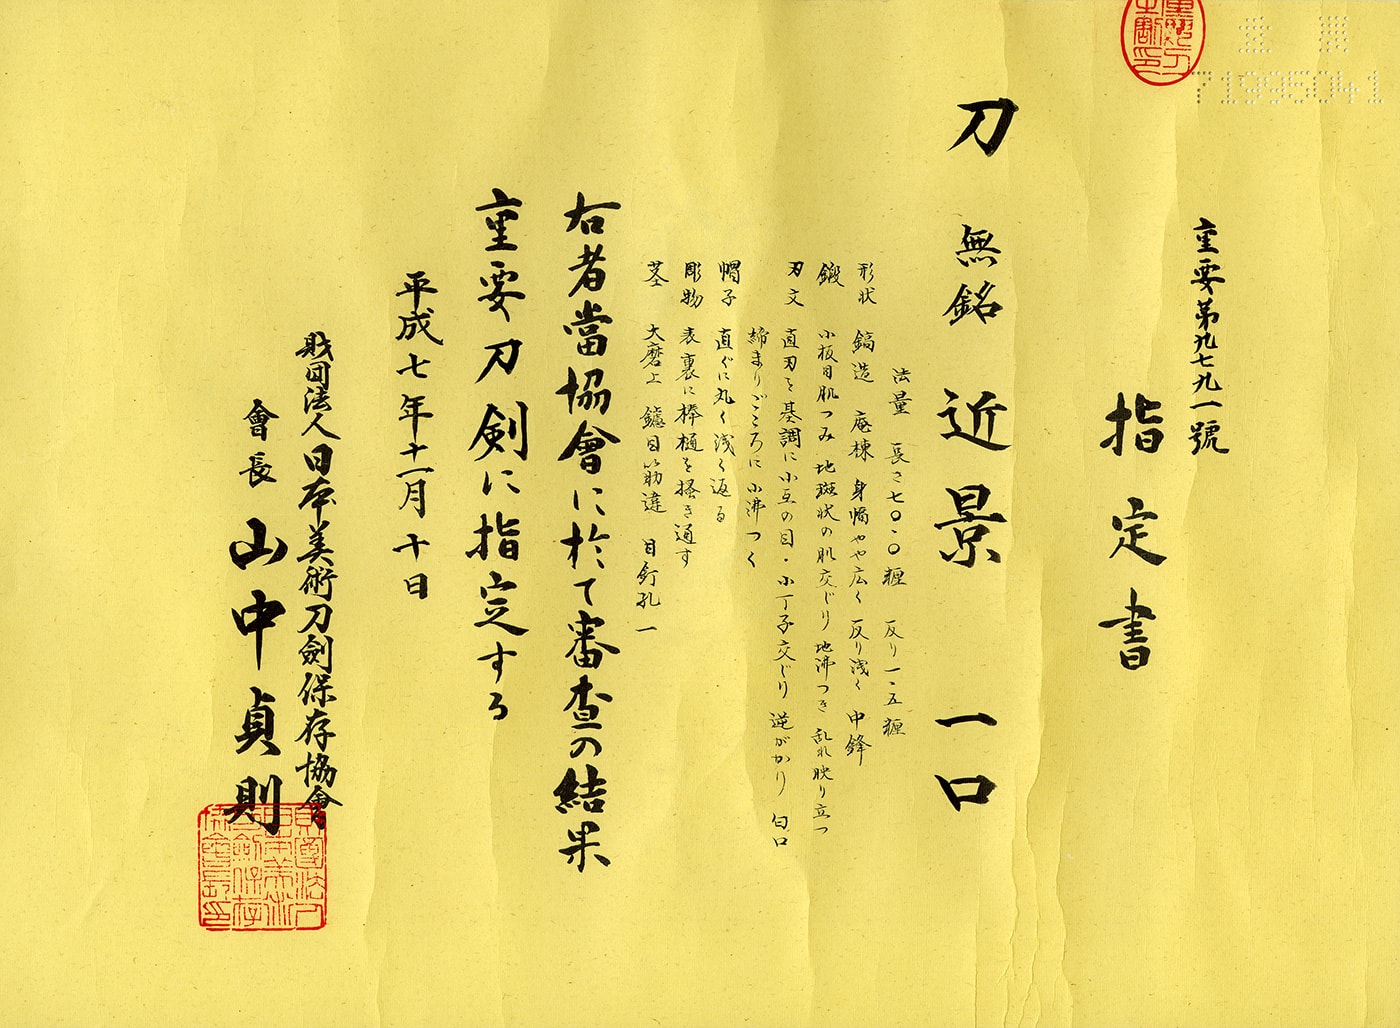 重要第九七九一號
指定書
刀 無銘 近景 一口
法量 長さ七〇・〇糎 反り一・五糎
形状 鎬造 庵棟 身幅やや広く 反り浅く 中鋒
鍛 小板目肌つみ 地斑状の肌交じり 地沸つき 乱れ映り立つ
刃文 直刃を基調に小互の目・小丁子交じり 逆がかり 匂口
締まりごころに小沸つく
帽子 直ぐに丸く浅く返る
彫物 表裏に棒樋を掻き通す
茎 大磨上 鑢目筋違 目釘孔一
右者當協會に於て審査の結果
重要刀剣に指定する
平成七年十一月十日
財団法人日本美術刀劍保存協會
會長 山中貞則
71995041